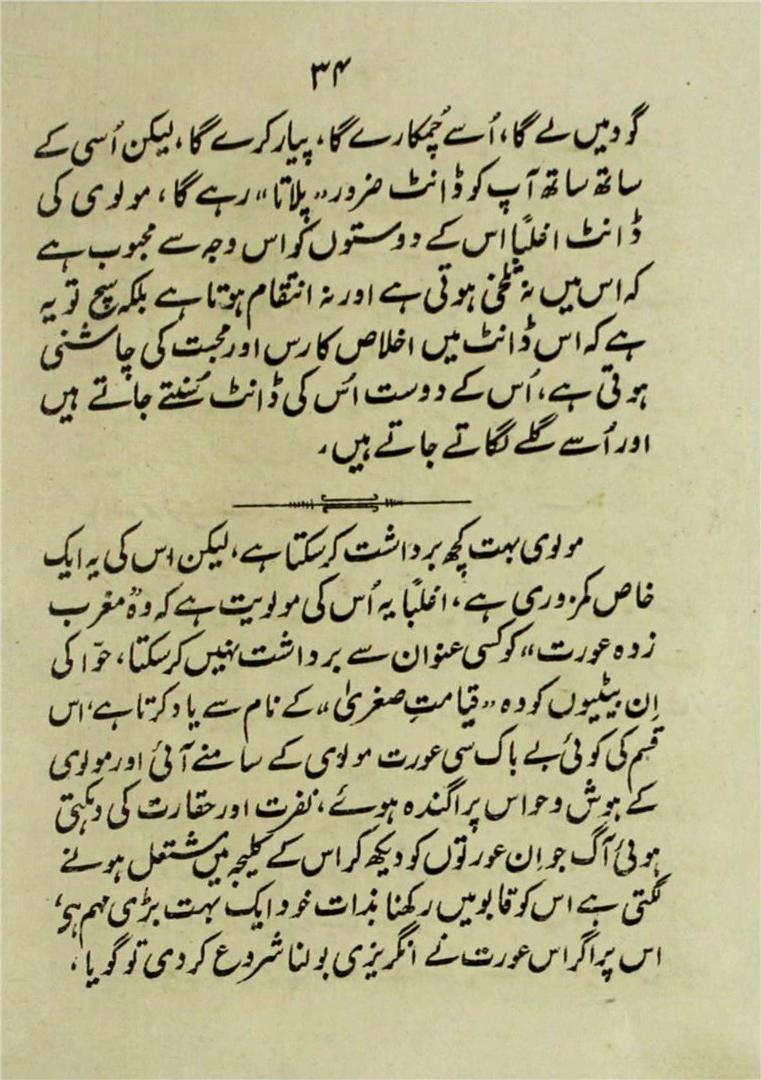 ۳۴
گود میں لے گا، اُسے چُمکارے گا، پیار کرے گا، لیکن اُسی کے
ساتھ ساتھ آپ کو ڈانٹ ضرور "پلاتا" رہے گا، مولوی کی
ڈانٹ اغلبًا اس کے دوستوں کو اس وجہ سے محبوب ہے
کہ اس میں نہ تلخی ہوتی ہے اور نہ انتقام ہوتا ہے بلکہ سچ تو یہ
ہے کہ اس ڈانٹ میں اخلاص کا رس اور محبت کی چاشنی
ہوتی ہے، اُس کے دوست اُس کی ڈانٹ سُنتے جاتے ہیں
اور اُسے گلے لگاتے جاتے ہیں۔
مولوی بہت کچھ برداشت کر سکتا ہے، لیکن اس کی یہ ایک
خاص کمزوری ہے، اغلبًا یہ اُس کی مولویت ہے کہ وہ "مغرب
زدہ عورت" کو کسی عنوان سے برداشت نہیں کر سکتا، حوّا کی
اِن بیٹیوں کو وہ "قیامتِ صغریٰ" کے نام سے یاد کرتا ہے، اس
قسم کی کوئی بے باک سی عورت مولوی کے سامنے آئی اور مولوی
کے ہوش و حواس پراگندہ ہوئے، نفرت اور حقارت کی دہکتی
ہوئی آگ جو اِن عورتوں کو دیکھ کر اس کے کلیجہ میں مشتعل ہونے
لگتی ہے اس کو قابو میں رکھنا بذات خود ایک بہت بڑی مہم ہے،
اس پر اگر اس عورت نے انگریزی بولنا شروع کر دی تو گویا،